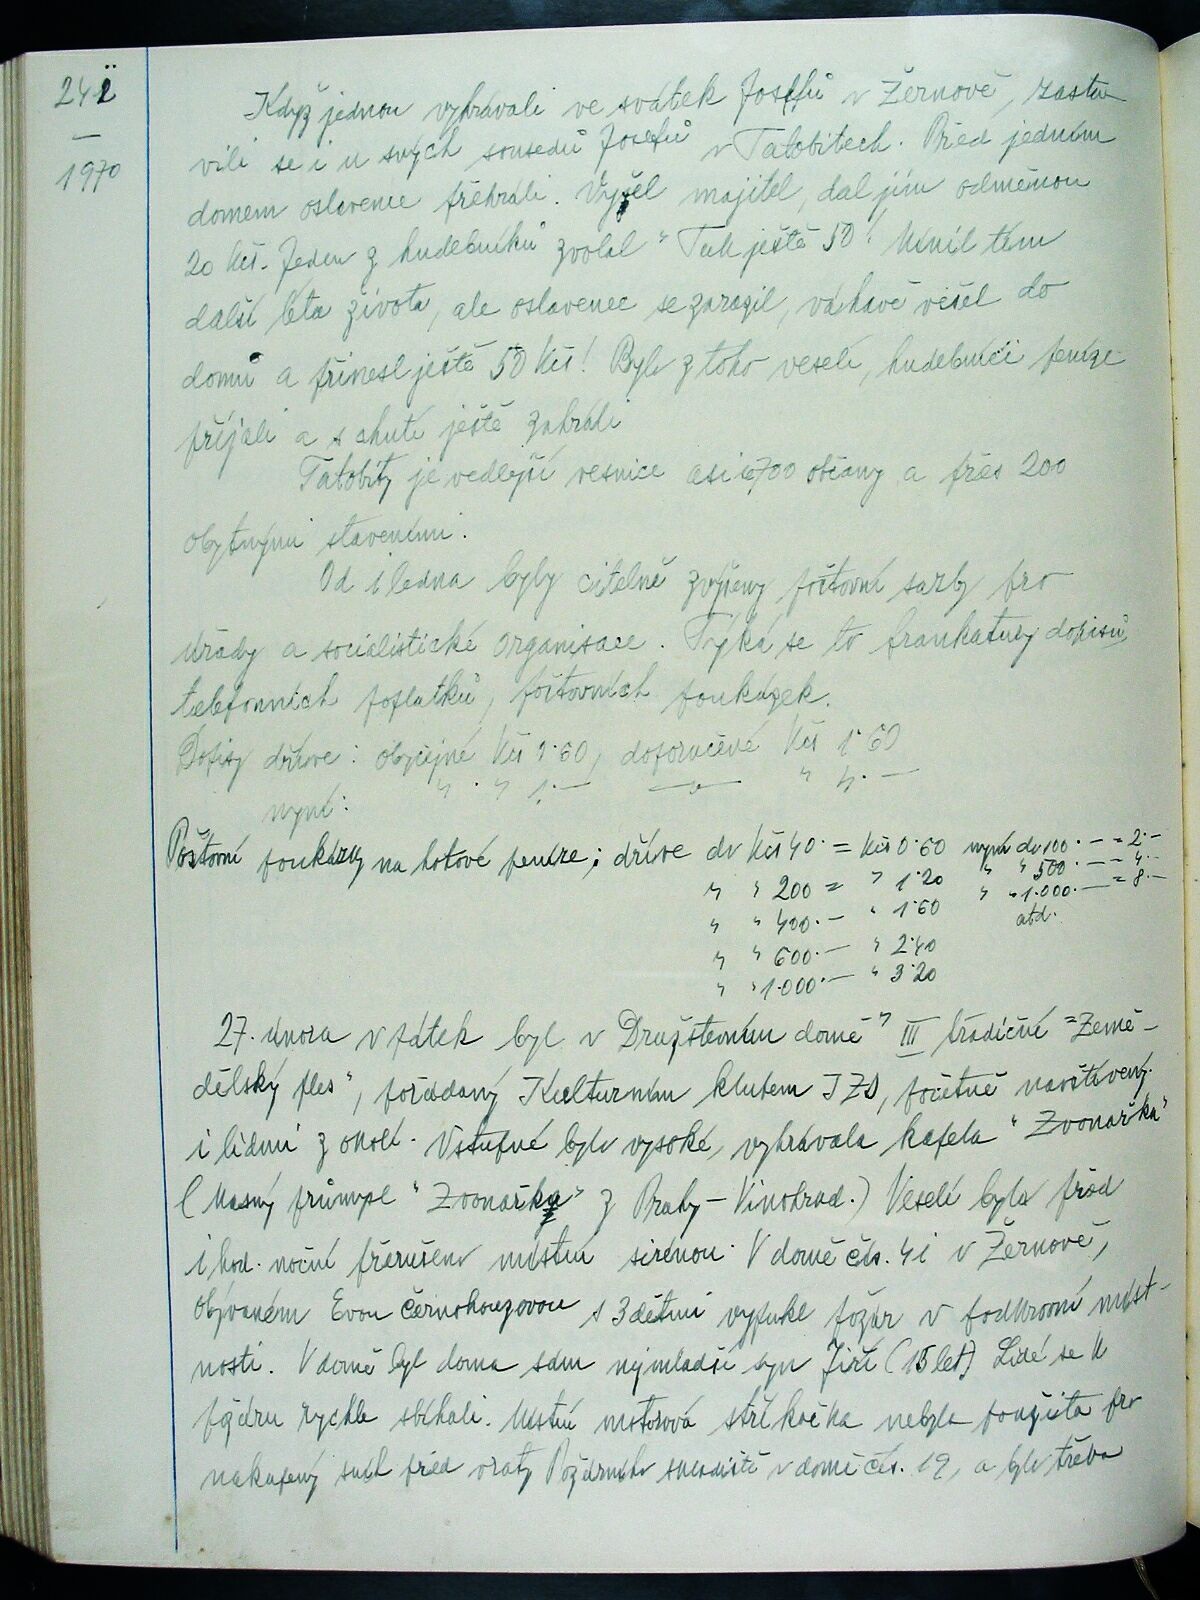 242
1970
Když jednou vyhrávali ve svátek Josefů v Žernově, zasta-
vili se i u svých sousedů Josefů v Tatobitech. Před jedním
domem oslavenci přehráli. Vyšel majitel, dal jim odměnou
20 Kčs. Jeden z hudebníků zvolal "Tak ještě 50! Mínil tím
další léta života, ale oslavenec se zarazil, váhavě vešel do
domů a přinesl ještě 50 Kčs! Bylo z toho veselí, hudebníci peníze
přijali a s chutí ještě zahráli
Tatobity je vedlejší vesnice asi s 700 občany a přes 200
obytnými staveními.
Od 1 ledna byly citelně zvýšeny poštovní sazby pro
úřady a socialistické organisace. Týká se to frankatury dopisů,
telefonních poplatků, poštovních poukázek.
Dopisy dříve: obyčejné Kčs 0·60, doporučené Kčs 1·60
nyní: " " 1.— —"— " 4.—
Poštovní poukázky na hotové peníze; dříve do Kčs 40·= Kčs 0·60 nyní do 100·— = 2·—
" " 200 = " 1·20 " " 500·— = 4·—
" " 400·— " 1·60 " " 1·000·— = 8·—
atd.
" " 600·— " 2·40
" " 1·000·— " 3·20
27. února v pátek byl v Družstevním domě III tradiční "Země-
dělský ples", pořádaný Kulturním klubem JZD, početně navštívený
i lidmi z okolí. Vstupné bylo vysoké, vyhrávala kapela "Zvonařka"
(Masný průmysl "Zvonařka" z Prahy – Vinohrad.) Veselí bylo před
1 hod. noční přerušeno místní sirénou. V domě čís. 41 v Žernově,
obývaném Evou Černohouzovou s 3 dětmi vypukl požár v podkrovní míst-
nosti. V domě byl doma sám nejmladší syn Jiří (15 let) Lidé se k
požáru rychle sbíhali. Místní motorová stříkačka nebyla použita pro
nakupený sníh před vraty Požárního skladiště v domě čís. 19, a bylo třeba